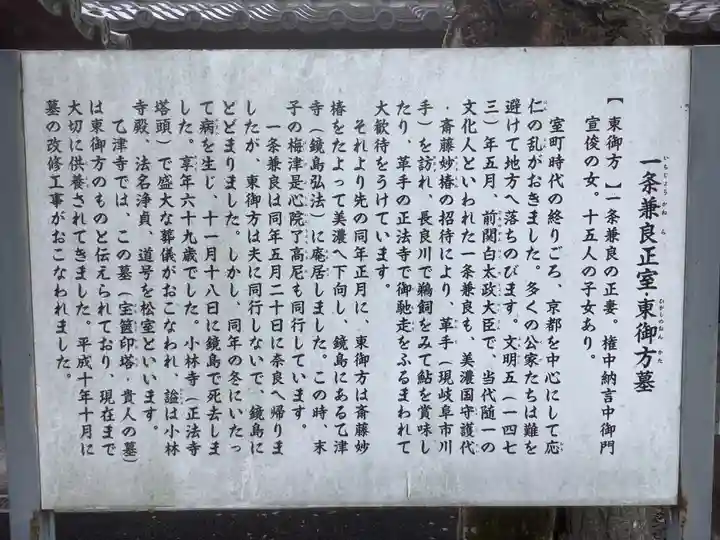 一条兼良正室・東御方墓
【東御方】一条兼良の正妻。権中納言中御門
宣俊の女。十五人の子女あり。
室町時代の終りごろ、京都を中心にして応
仁の乱がおきました。多くの公家たちは難を
避けて地方へ落ちのびます。文明五(一四七
三)年五月、前関白太政大臣で、当代随一の
文化人といわれた一条兼良も、美濃国守護代
・斎藤妙椿の招待により、革手(現岐阜市川
手)を訪れ、長良川で鵜飼をみて鮎を賞味し
たり、革手の正法寺で御馳走をふるまわれて
大歓待をうけています。
それより先の同年正月に、東御方は斎藤妙
椿をたよって美濃へ下向し、鏡島にある乙津
寺(鏡島弘法)に庵居しました。この時、末
子の梅津是心院了高尼も同行しています。
一条兼良は同年五月二十日に奈良へ帰りま
したが、東御方は夫に同行しないで、鏡島に
とどまりました。しかし、同年の冬にいたっ
て病を生じ、十一月十八日に鏡島で死去しま
した。享年六十九歳でした。小林寺(正法寺
塔頭)で盛大な葬儀がおこなわれ、諡は小林
寺殿、法名浄貞、道号を松室といいます。
乙津寺では、この墓(宝篋印塔・貴人の墓)
は東御方のものと伝えられており、現在まで
大切に供養されてきました。平成十年十月に
墓の改修工事がおこなわれました。